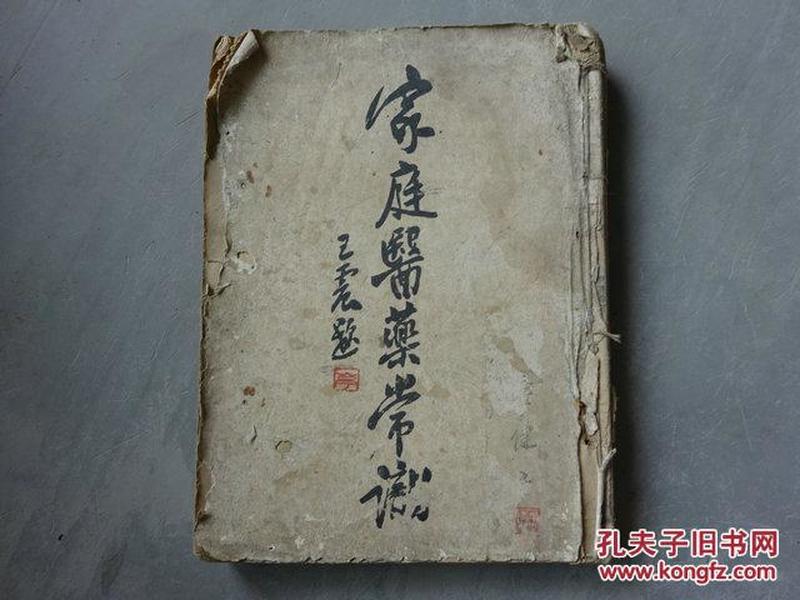 家庭醫藥常識
王震題
孔夫子旧书网
www.kongfz.com